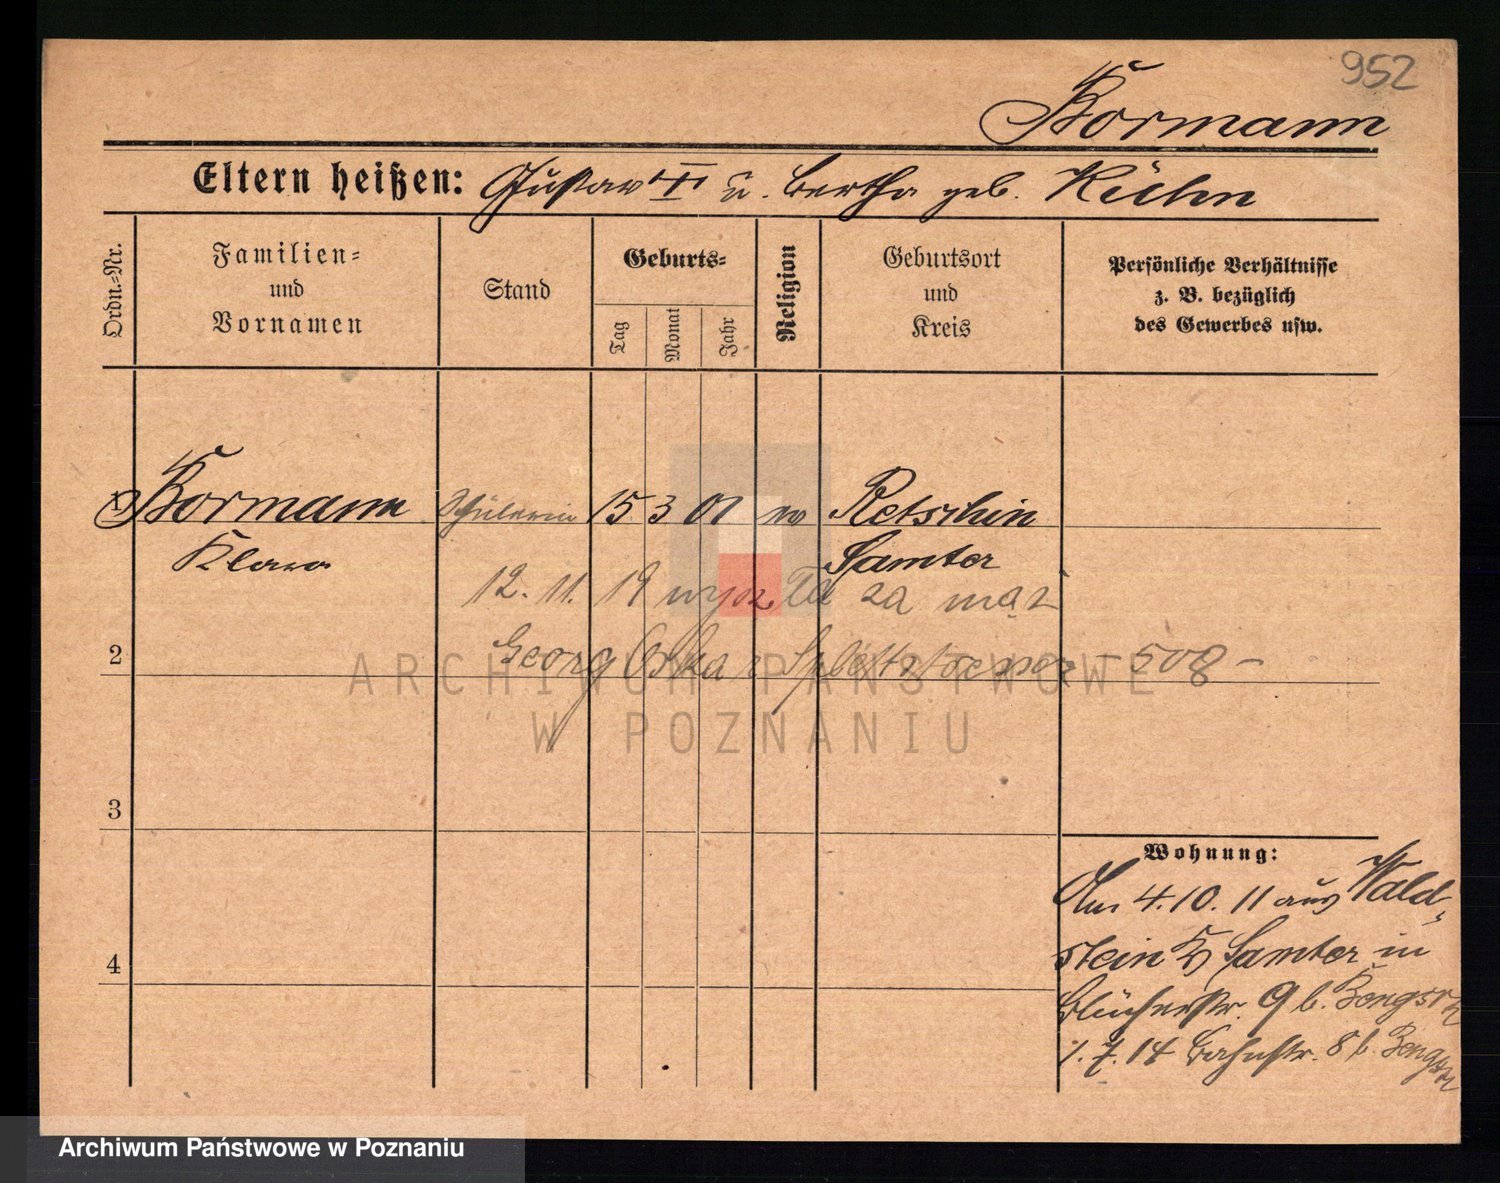 952
Bormann
Eltern heißen: Gustav II u. Bertha geb. Kühn
Ordn.-Nr.
Familien-
und
Vornamen
Stand
Geburts-
Tag
Monat
Jahr
Religion
Geburtsort
und
Kreis
Persönliche Verhältnisse
z. B. bezüglich
des Gewerbes usw.
1 Bormann Schülerin 15 3 01 Retschin
Klara Samter
12. 11. 19 wyszła za mąż
2 Georg Oskar - 508 -
ARCHIWUM PAŃSTWOWE
W POZNANIU
3
Wohnung:
Am 4.10.11 aus Wald-
4 stein Samter in
Blücherstr. 9 b.
1.7.14 Bahnstr. 8 b.
Archiwum Państwowe w Poznaniu